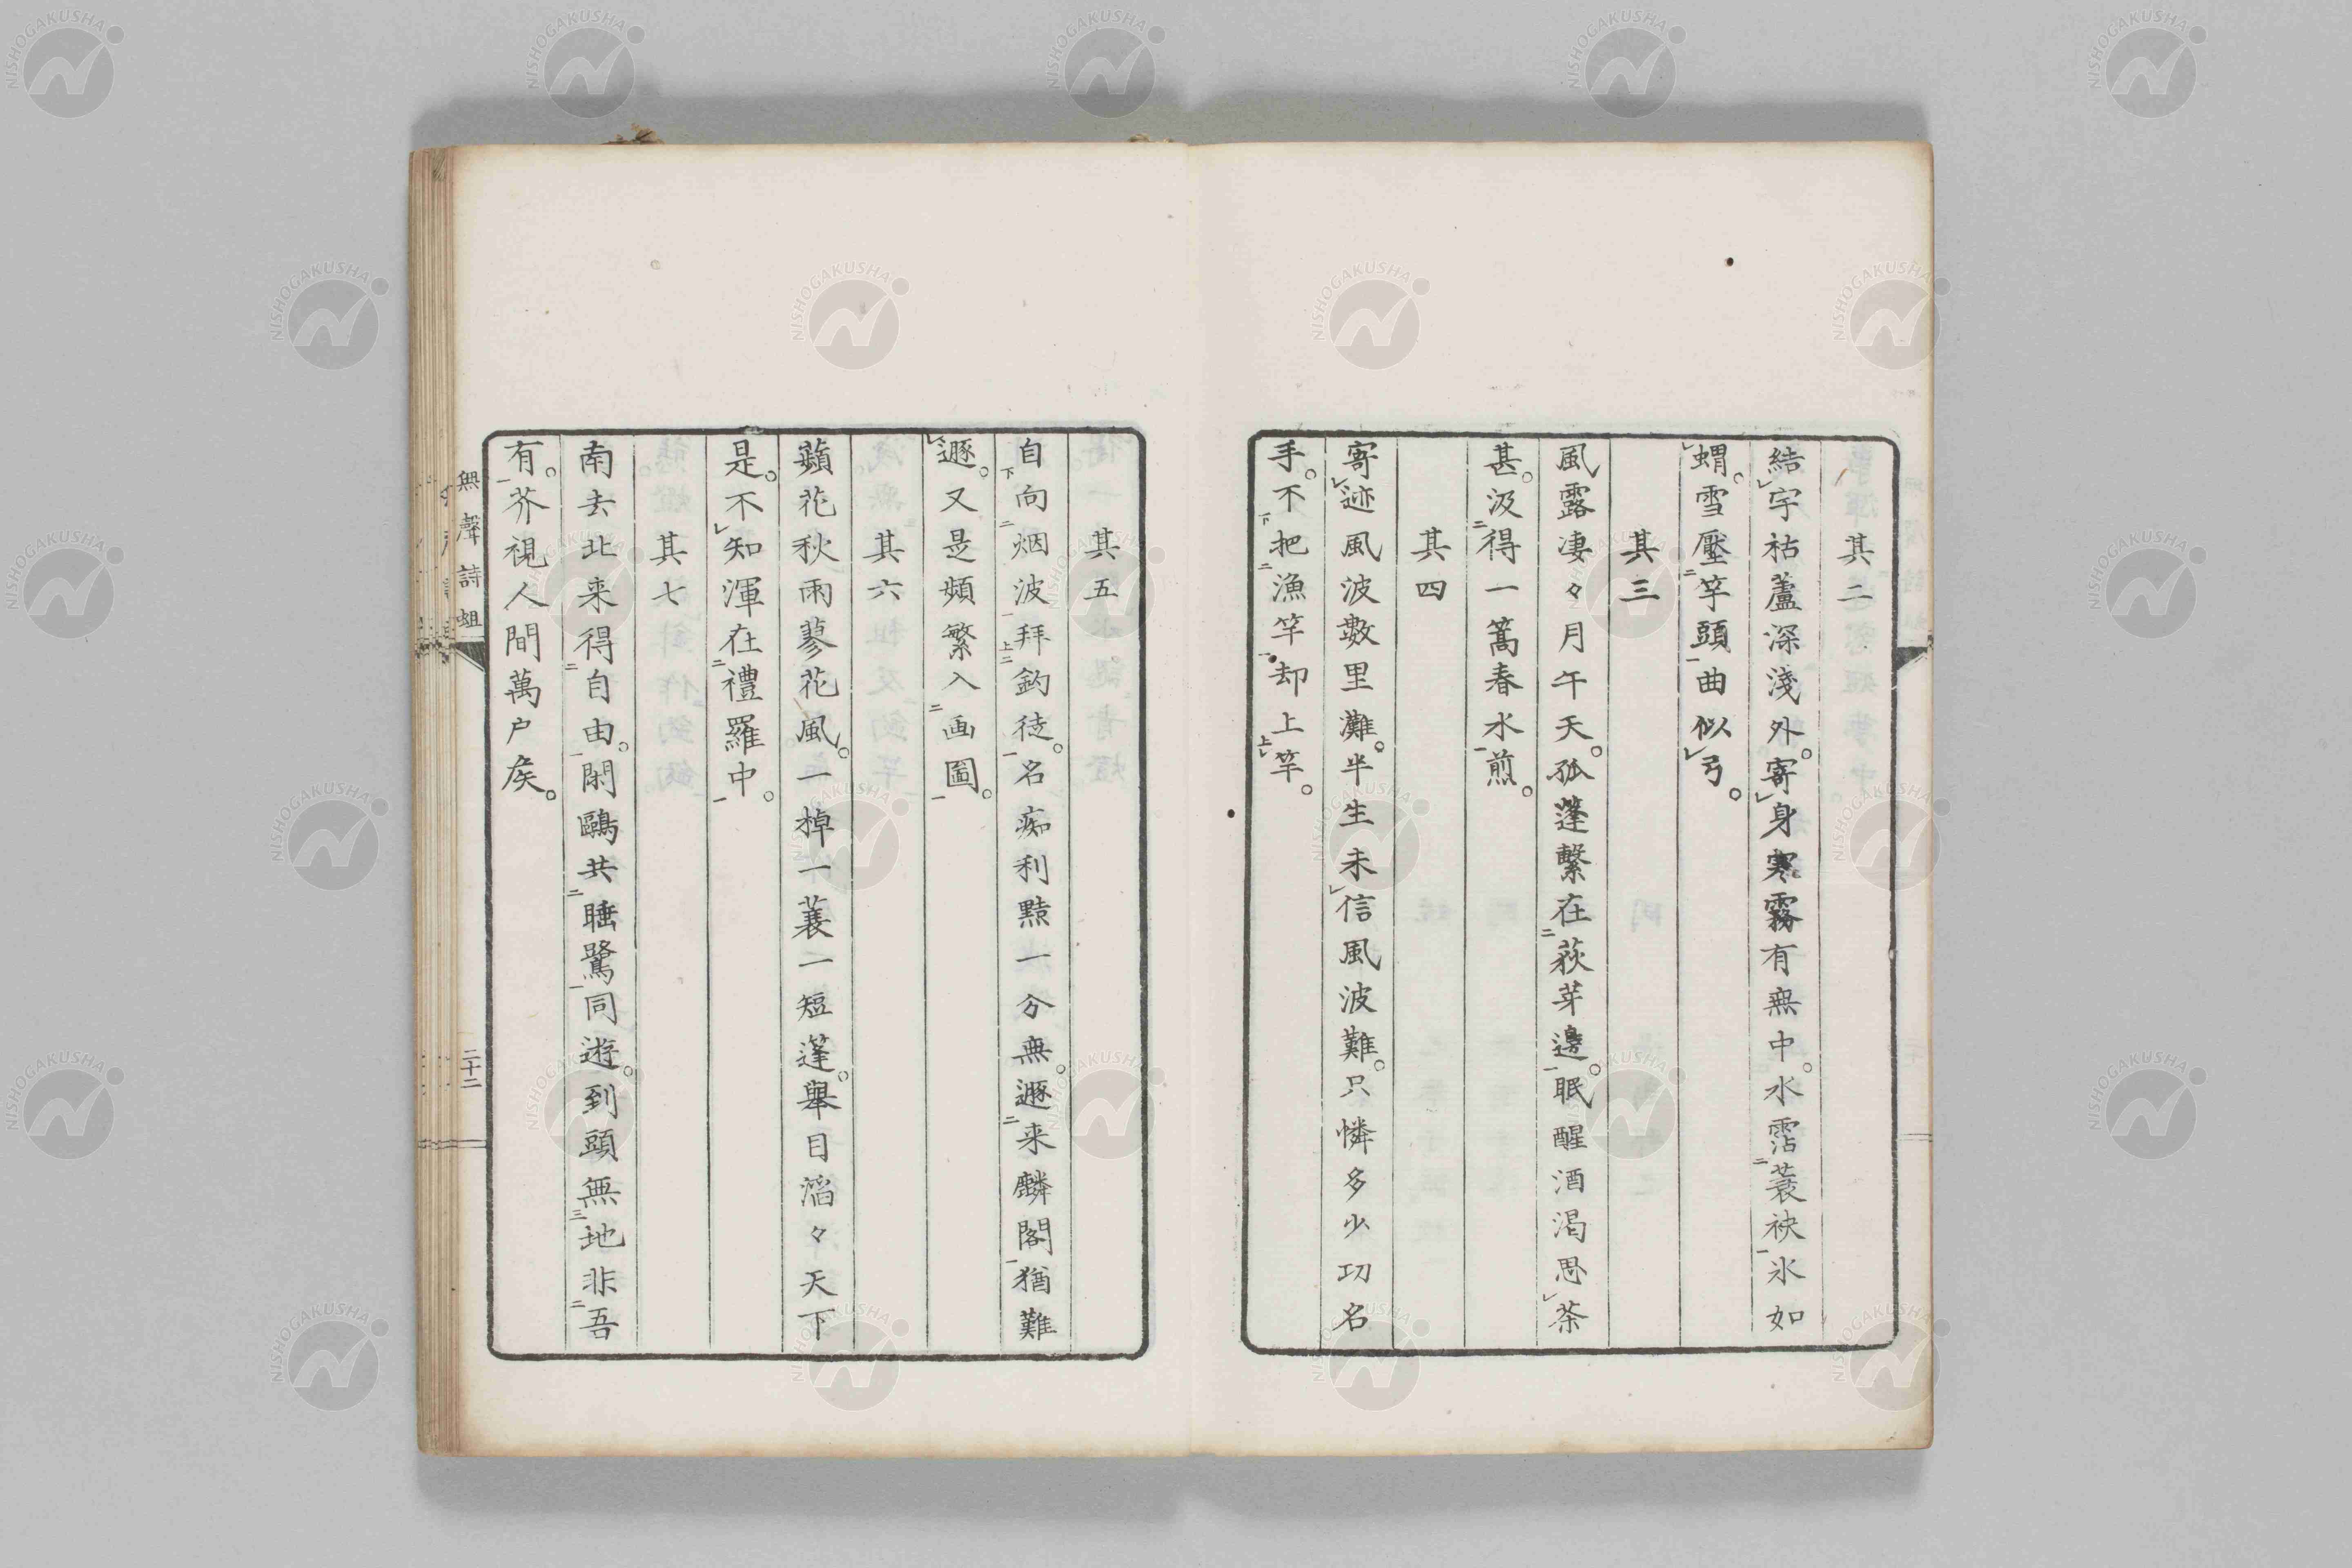 其二
結宇枯蘆深淺外。寄身寒霧有無中。水霑蓑袂氷如
蝟。雪壓竿頭曲似弓。
其三
風露凄々月午天。孤篷繫在荻芽邊。眠醒酒渴思茶
甚。汲得一篙春水煎。
其四
寄迹風波數里灘。半生未信風波難。只憐多少功名
手。不把漁竿却上竿。
其五
自向烟波拜釣徒。名痴利黠一分無。遯来麟閣猶難
遯。又是頻繁入画圖。
其六
蘋花秋雨蓼花風。一棹一蓑一短篷。舉目滔々天下
是。不知渾在禮羅中。
其七
南去北来得自由。閑鷗共睡鷺同遊。到頭無地非吾
有。芥視人間萬户矦。
無聲詩蛆
二十二
NISHOGAKUSHA